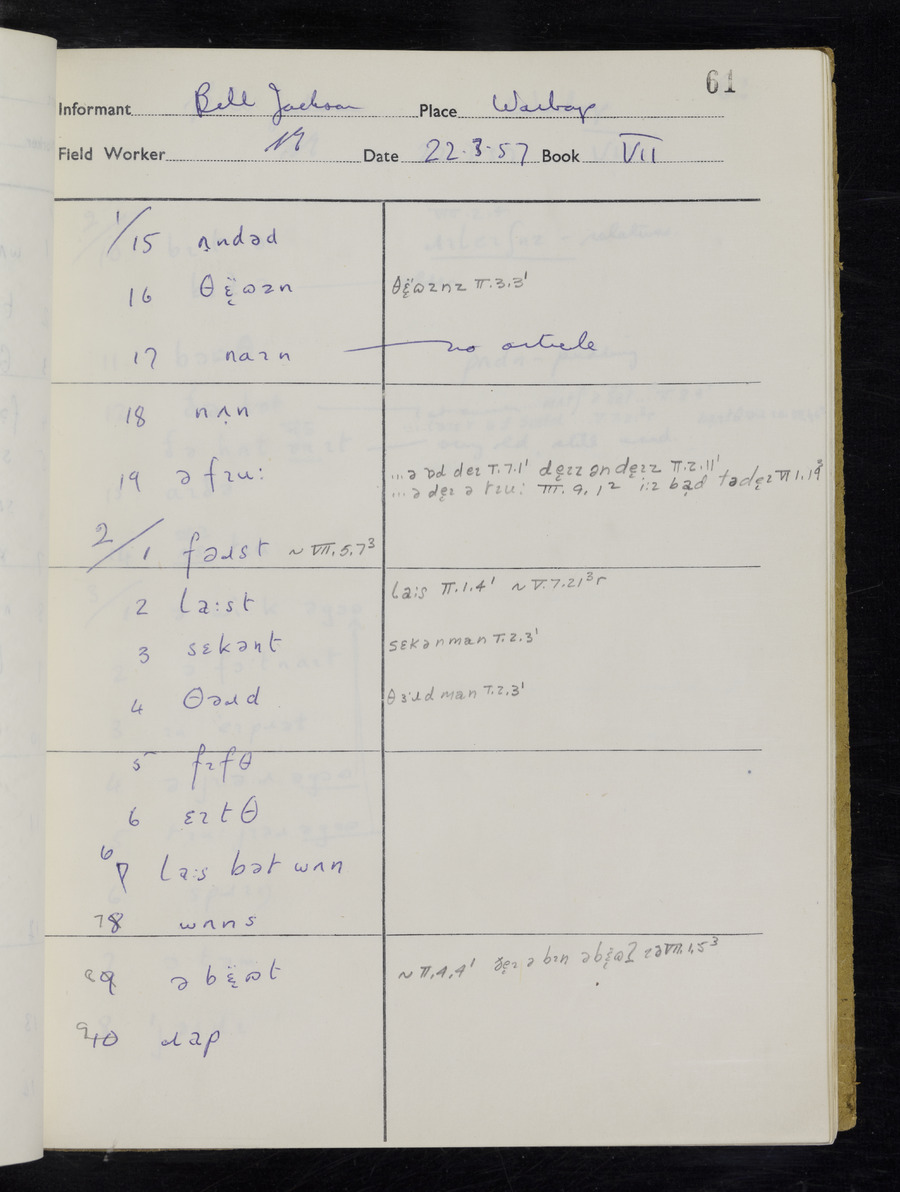 61
Informant Bill Jackson Place Warboys
Field Worker Date 22.3.57 Book VII
1/15 ʌ̣ndəd
16 θɛ̣̈ɷzn θɛ̣̈ɷznz II.3.3¹
17 naɪn — no article
18 nʌ̣n
19 ə fɪu: ...ə ɒd deɪ I.7.1¹ dẹɪz ən dẹɪz II.2.11¹
...ə dẹɪ ə fɪu: III.9.1² i:z bạd tədẹɪ VI.1.19³
2/1 fəɹst ~ VII.5.7³
2 la:st la:s II.1.4¹ ~ V.7.21³r
3 sɛkənt sɛkənman I.2.3¹
4 θəɹd θɜ·ɹd man I.2.3¹
5 fɪfθ
6 ɛɪtθ
6 7 la:s bət wʌn
7 8 wʌns
8 9 ə bɛ̣̈ɷt ~ II.4.4¹
9 10 ɹap